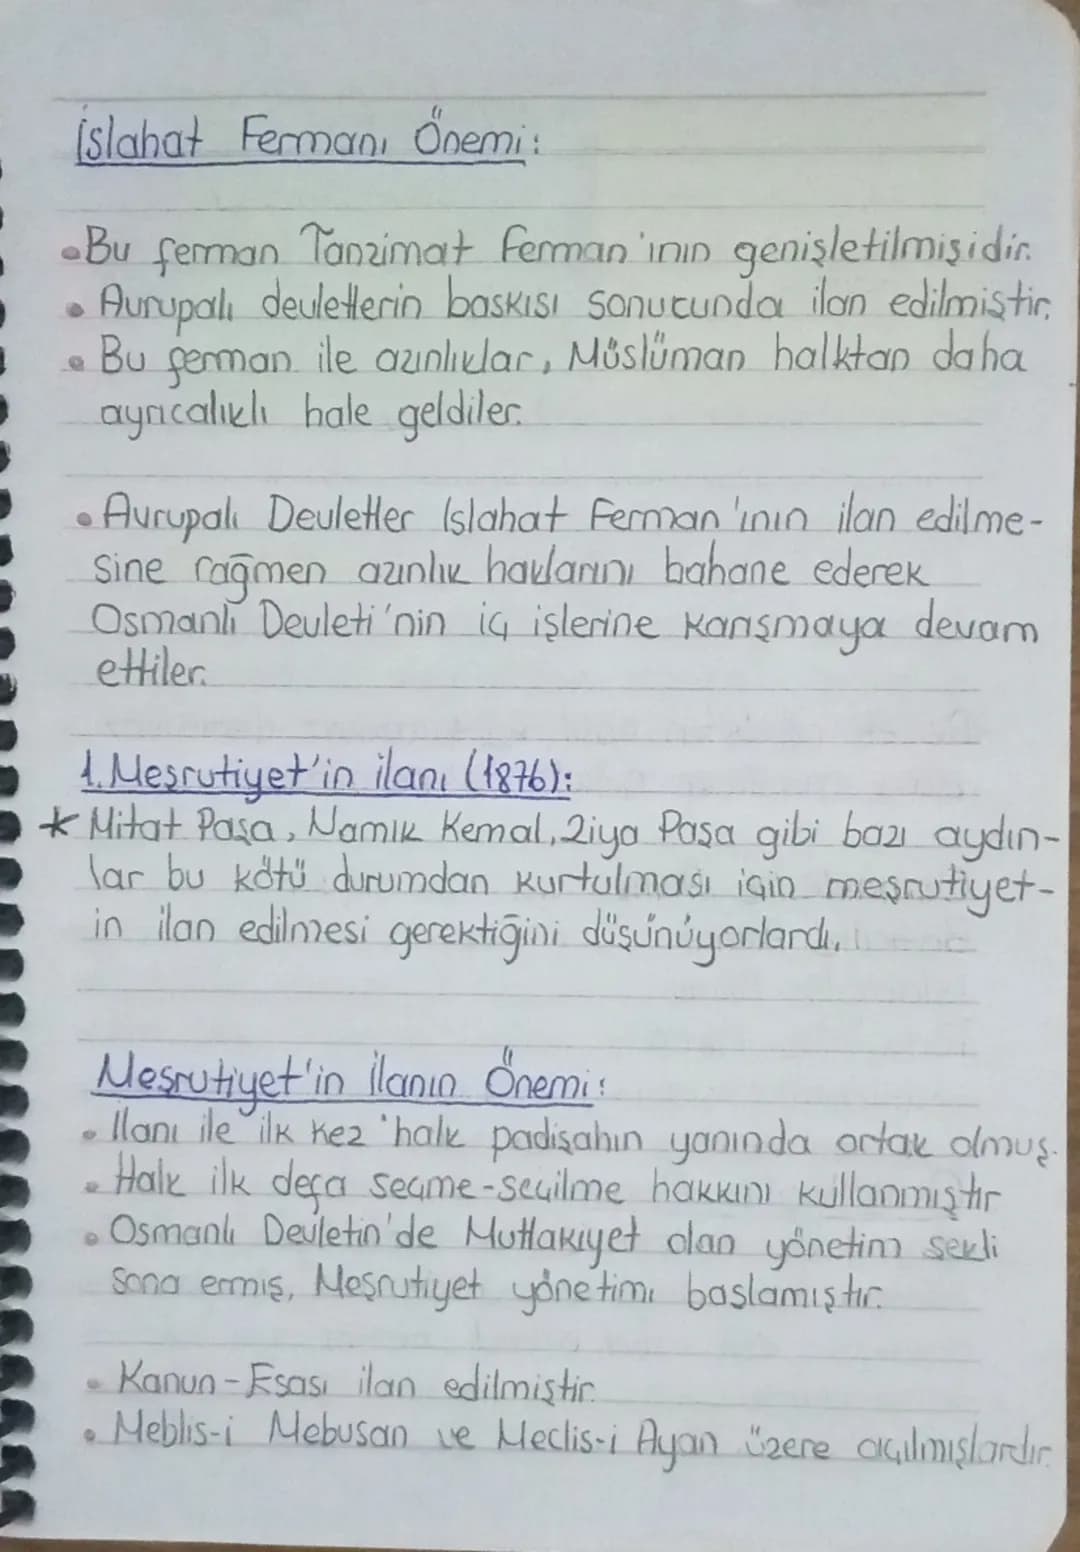 İslahat Fermanı Önemi:
• Bu ferman Tanzimat Ferman'ının genişletilmişidir.
• Avrupalı devletlerin baskısı sonucunda ilan edilmiştir.
• Bu ferman ile azınlıklar, Müslüman halktan daha
ayrıcalıklı hale geldiler.
• Avrupalı Devletler Islahat Ferman'ının ilan edilme-
sine rağmen azınlık haklarını bahane ederek
Osmanlı Devleti'nin iç işlerine karışmaya devam
ettiler.
1. Meşrutiyet'in ilanı (1876):
* Mitat Paşa, Namık Kemal, Ziya Paşa gibi bazı aydın-
lar bu kötü durumdan kurtulması için meşrutiyet-
in ilan edilmesi gerektiğini düşünüyorlardı.
Meşrutiyet'in İlanın Önemi:
• Ilanı ile ilk kez 'halk padişahın yanında ortak olmuş.
• Halk ilk defa seçme-seçilme hakkını kullanmıştır
• Osmanlı Devletin'de Mutlakıyet olan yönetim şekli
sona ermiş, Meşrutiyet yönetimi baslamıştır.
• Kanun-Esası ilan edilmiştir.
• Meblis-i Mebusan ve Meclis-i Ayan üzere açılmışlardır.